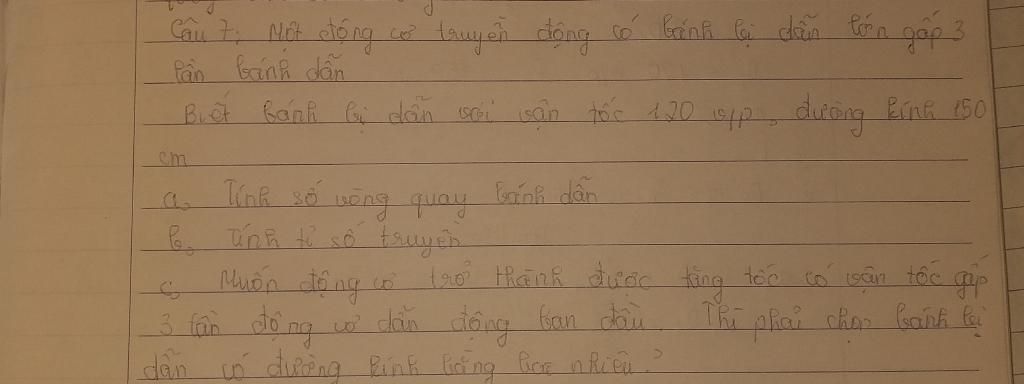 Câu 7: Một động cơ truyền động có bánh bị dẫn lớn gấp 3
lần bánh dẫn
Biết bánh bị dẫn với vận tốc 120 v/p, đường kính 150
cm
a, Tính số vòng quay bánh dẫn
b, Tính tỉ số truyền
c, Muốn động cơ trở thành được tăng tốc có vận tốc gấp
3 lần động cơ dẫn động ban đầu. Thì phải chọn bánh bị
dẫn có đường kính bằng bao nhiêu?